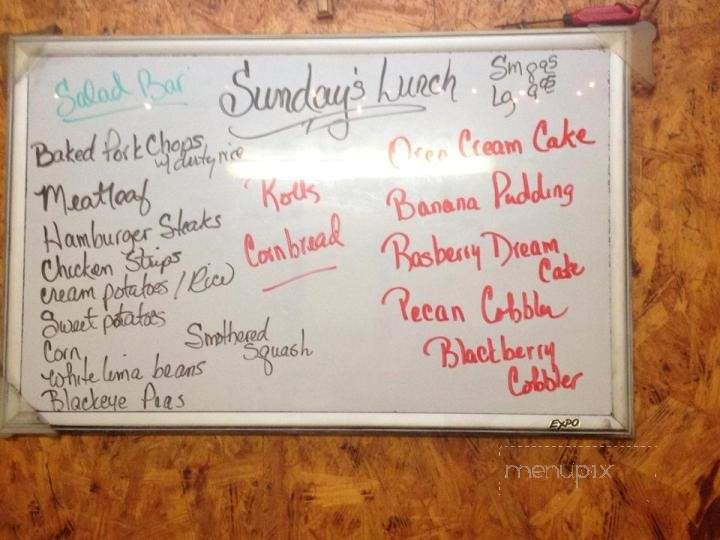 Salad Bar
Sunday's Lunch
Sm 8.95
Lg 9.95
Baked Pork Chops
w/ dirty rice
Meatloaf
Hamburger Steaks
Chicken Strips
cream potatoes / Rice
Sweet potatoes
Corn
White lima beans
Blackeye Peas
Smothered
Squash
Rolls
Cornbread
Oreo Cream Cake
Banana Pudding
Rasberry Dream
Cake
Pecan Cobbler
Blackberry
Cobbler
EXPO
menupix